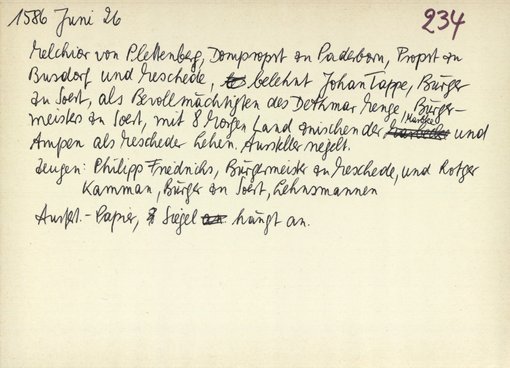 1586 Juni 26
234
Melchior von Plettenberg, Dompropst zu Paderborn, Propst zu
Busdorf und Meschede, belehnt Johan Tappe, Bürger
zu Soest, als Bevollmächtigten des Dethmar Menge, Bürger-
meister zu Soest, mit 8 Morgen Land zwischen der und
Ampen als Mescheder Lehen. Aussteller siegelt.
Zeugen: Philipp Friedrichs, Bürgermeister zu Meschede, und Rotger
Kamman, Bürger zu Soest, Lehnsmannen
Ausf.- Papier, Siegel hängt an.